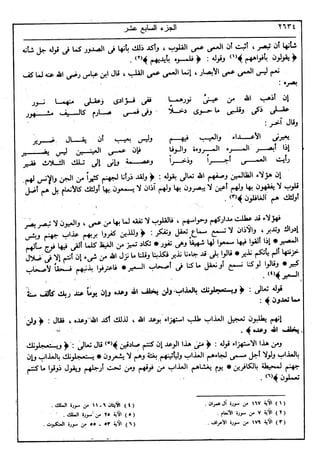 ٢٦٣٤ الجزء السابع عشر
شأنها أن تبصر، أثبت أن العمى عمى القلوب، وأكد ذلك بأنها فى الصدور كما فى قوله جل شأنه
﴿ يقولون بأفواههم ﴾(١) وقوله: ﴿ فلمسوه بأيديهم ﴾(٢).
نعم ليس العمى عمى الأبصار، إنما العمى عمى القلب، قال ابن عباس رضى الله عنه لما كف
بصره:
إن أذهب الله من عينى نورهما ففى فؤادى وعقلى منهما نور
عقلى ذكى وقلبى ما حوى دخلا وفى فمى صارم كالسيف مشهور
وقال آخر:
يعيرنى الأعداء والعيب فيهم وليس بعيب أن يقال ضرير
إذا أبصر المرء المروءة والوفا فإن عمى العينين ليس يضير
رأيت العمى أجراً وذخراً وعصمة وإنى إلى تلك الثلاث فقير
إن هؤلاء الظالمين وصفهم الله تعالى بقوله: ﴿ ولقد ذرأنا لجهنم كثيراً من الجن والإنس لهم
قلوب لا يفقهون بها ولهم أعين لا يبصرون بها ولهم آذان لا يسمعون بها أولئك كالأنعام بل هم أضل
أولئك هم الغافلون ﴾(٣).
فهؤلاء قد عطلت مداركهم وحواسهم، فالقلوب لا تفقه لما بها من عمى، والعيون لا تبصر بصر
إدراك وتدبر، والآذان لا تسمع سماع تعقل وتفكر: ﴿ وللذين كفروا بربهم عذاب جهنم وبئس
المصير * إذا ألقوا فيها سمعوا لها شهيقا وهى تفور * تكاد تميز من الغيظ كلما ألقى فيها فوج سألهم
خزنتها ألم يأتكم نذير * قالوا بلى قد جاءنا نذير فكذبنا وقلنا ما نزل الله من شىء إن أنتم إلا فى ضلال
كبير * وقالوا لو كنا نسمع أو نعقل ما كنا فى أصحاب السعير * فاعترفوا بذنبهم فسحقا لأصحاب
السعير ﴾(٤).
قوله تعالى: ﴿ ويستعجلونك بالعذاب ولن يخلف الله وعده وإن يوماً عند ربك كألف سنة
مما تعدون ﴾:
إنهم يطلبون تعجيل العذاب طلب استهزاء بوعد الله، لذلك أكد الله وعده، فقال: ﴿ ولن
يخلف الله وعده ﴾.
ومن هذا الاستهزاء قوله: ﴿ متى هذا الوعد إن كنتم صادقين ﴾(٥) قال تعالى: ﴿ ويستعجلونك
بالعذاب ولولا أجل مسمى لجاءهم العذاب وليأتينهم بغتة وهم لا يشعرون * يستعجلونك بالعذاب وإن
جهنم لمحيطة بالكافرين * يوم يغشاهم العذاب من فوقهم ومن تحت أرجلهم ويقول ذوقوا ما كنتم
تعملون ﴾(٦).
(١) الآية ١٦٧ من سورة آل عمران.
(٢) الآية ٧ من سورة الأنعام.
(٣) الآية ١٧٩ من سورة الأعراف.
(٤) الآيتان ٦ ـ ١١ من سورة الملك.
(٥) الآية ٢٥ من سورة الملك.
(٦) الآية ٥٣ ـ ٥٥ من سورة العنكبوت.